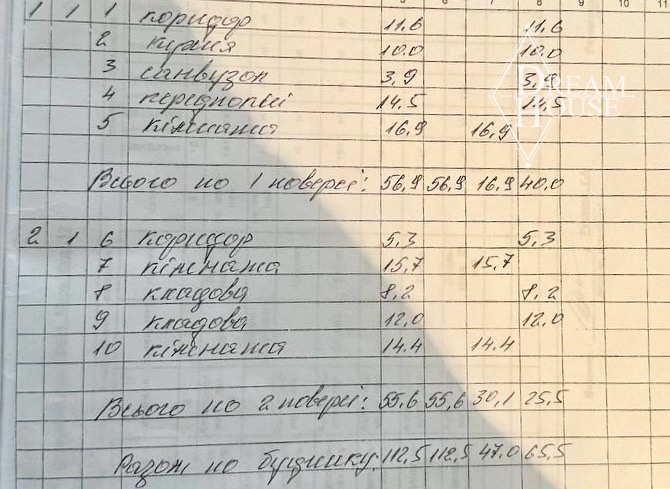 5 7 8 9 10 11
1 1 1 коридор 11.6 11.6
2 кухня 10.0 10.0
3 санвузол 3,9 3,9
4 передпокій 14.5 14,5
5 кімната 16,9 16,9
DREAM HOUSE
Всього по 1 поверсі: 56,9 56,9 16,9 40.0
2 1 6 коридор 5,3 5,3
7 кімната 15,7 15,7
8 кладова 8,2 8,2
9 кладова 12,0 12.0
10 кімната 14.4 14.4
Всього по 2 поверсі: 55,6 55,6 30,1 25,5
Разом по будинку: 112,5 112,5 47.0 65,5